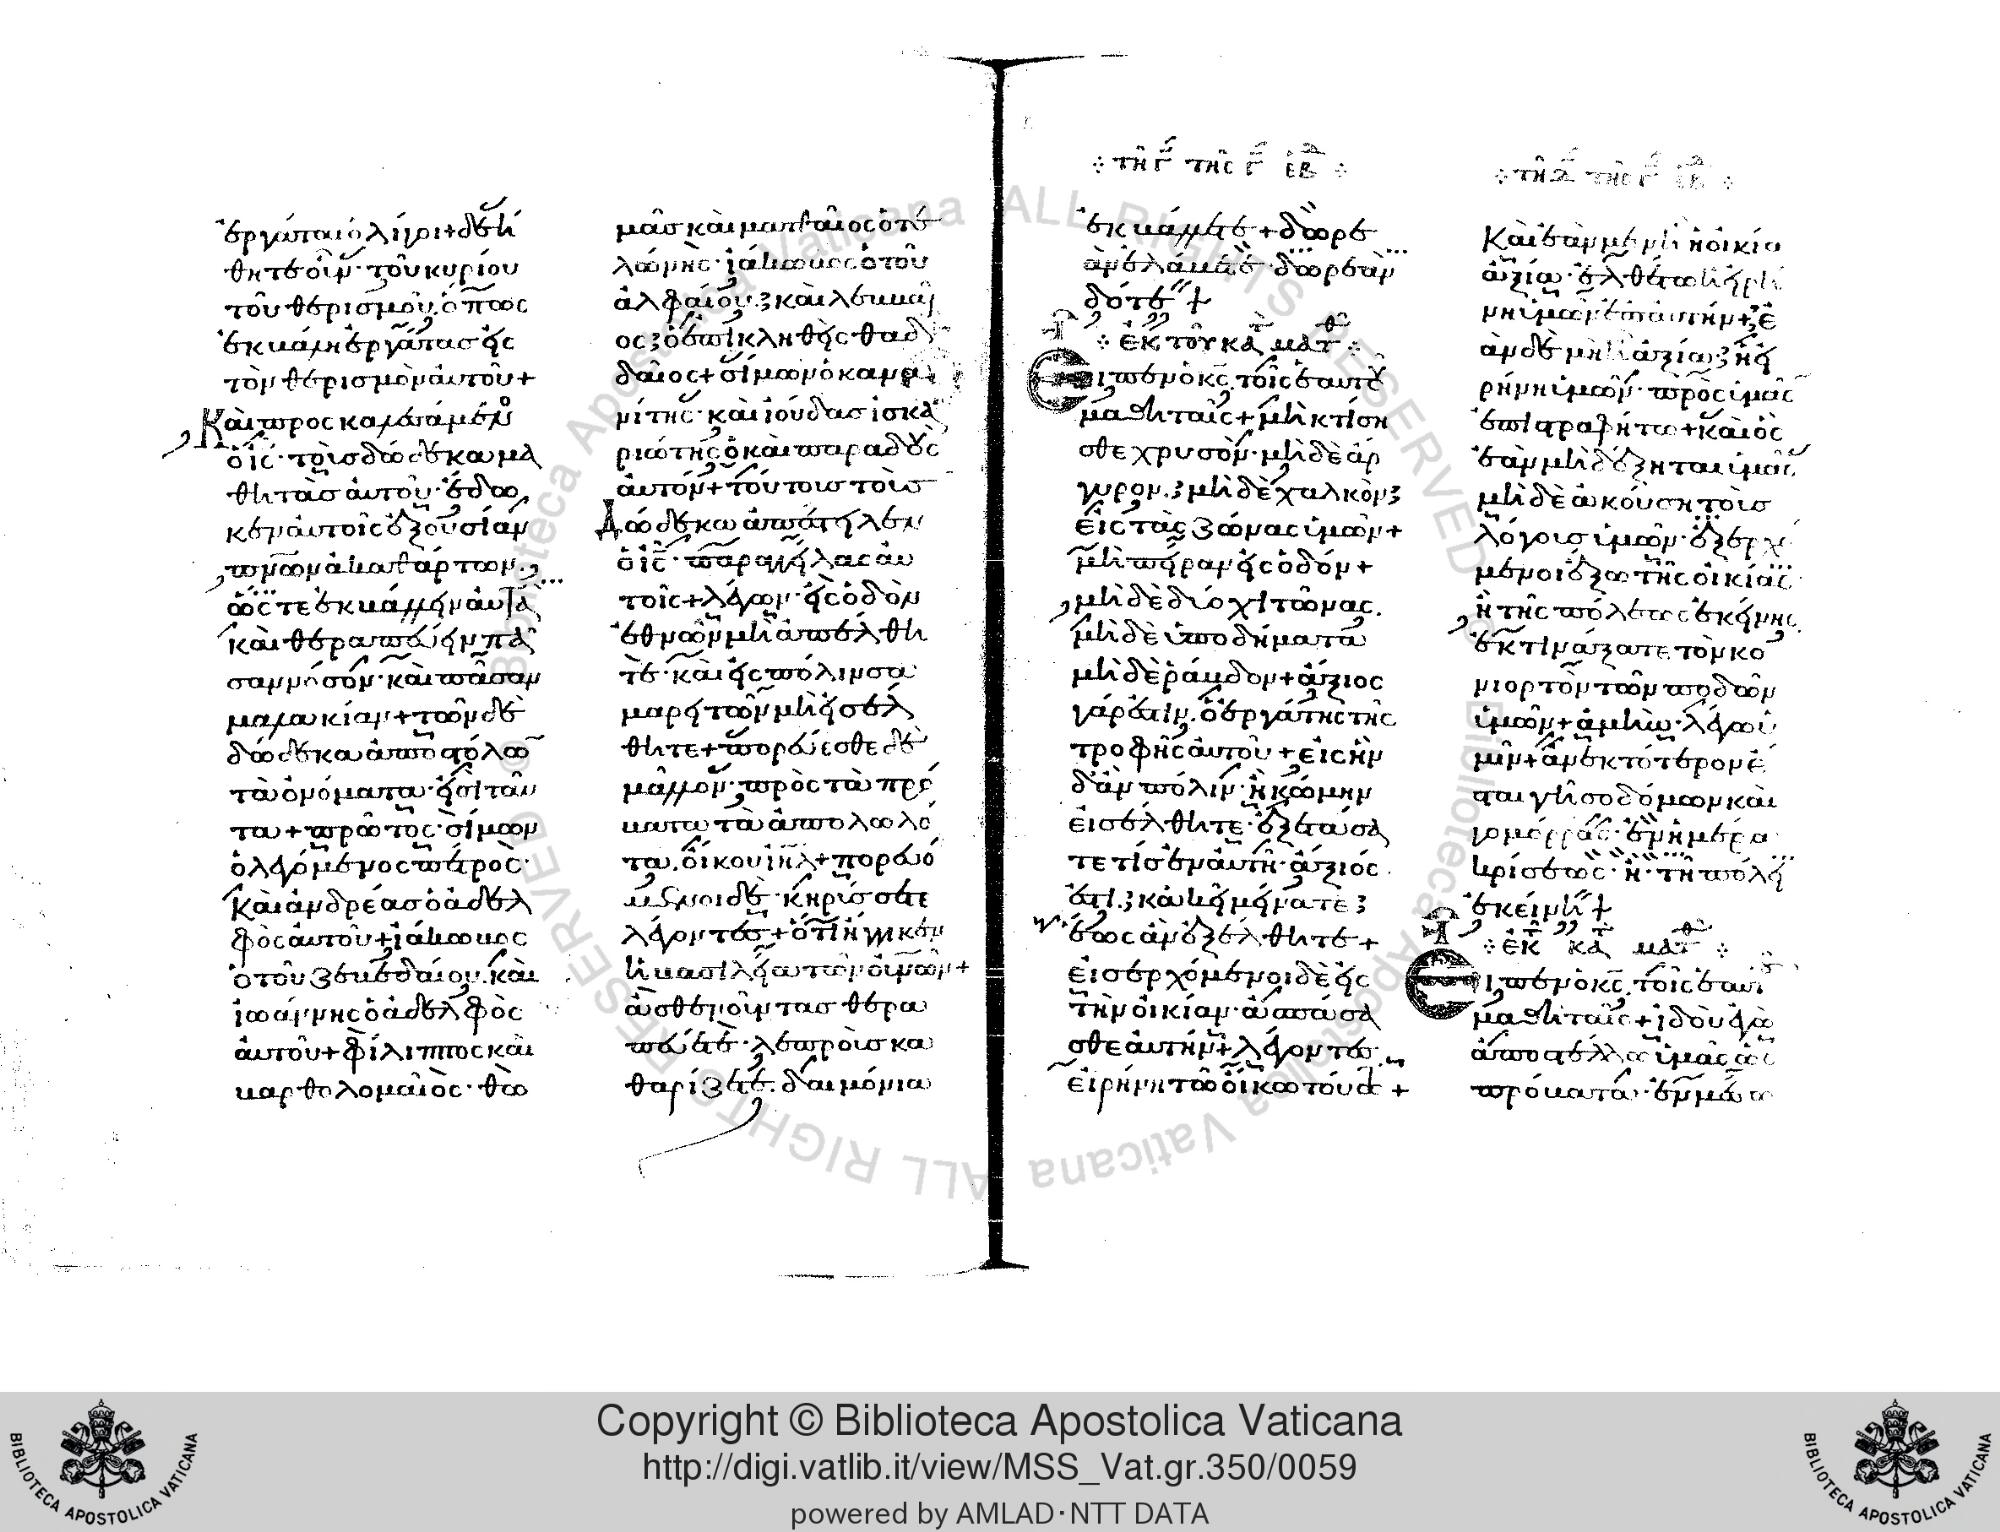 ἐργάται ὀλίγοι + δεή
θητε οὖν · τοῦ κυρίου
τοῦ θερισμοῦ, ὅπως
ἐκβάλη ἐργάτας εἰς
τὸν θερισμὸν αὐτοῦ +
Καὶ προσκαλεσάμενο
ὁ ις · τοὺς δώδεκα μα
θητὰς αὐτοῦ · ἔδω
κεν αὐτοῖς ἐξουσίαν
πνων ἀκαθάρτων ·
ὥστε ἐκβάλλειν αὐτά
καὶ θεραπεύειν πᾶ
σαν νόσον · καὶ πᾶσαν
μαλακίαν + τῶν δὲ
δώδεκα ἀποστόλω
τὰ ὀνόματα · εἰσὶ ταῦ
τα + πρῶτος · σίμων
ὁ λεγόμενος πέτρος ·
Καὶ ἀνδρέας ὁ ἀδελ
φὸς αὐτοῦ + ἰάκωβος
ὁ τοῦ ζεβεδαίου · καὶ
ἰωάννης ὁ ἀδελφὸς
αὐτοῦ + φίλιππος καὶ
βαρθολομαῖος · θω
μᾶς καὶ ματθαῖος ὁ τε
λώνης · ἰάκωβος ὁ τοῦ
ἀλφαίου · καὶ λεββαῖ
ος · ὁ ἐπικληθεὶς θαδ
δαῖος + σίμων ὁ κανα
νίτης · καὶ ἰούδας ἰσκα
ριώτης ὁ καὶ παραδοὺς
αὐτόν + τούτους τοὺς
Δώδεκα ἀπέστειλεν
ὁ ις · παραγγείλας αὐ
τοῖς + λέγων · εἰς ὁδὸν
ἐθνῶν μὴ ἀπέλθη
τε · καὶ εἰς πόλιν σα
μαρειτῶν μὴ εἰσέλ
θητε + πορεύεσθε δὲ
μᾶλλον · πρὸς τὰ πρό
βατα τὰ ἀπολωλό
τα, οἴκου ιηλ + πορευό
μενοι δὲ · κηρύσσετε
λέγοντες + ὅτι ἤγγικεν
ἡ βασιλεία τῶν οὐνῶν +
ἀσθενοῦντας θερα
πεύετε · λεπροὺς κα
θαρίζετε · δαιμόνια
τῆ γ τῆς γ ἑβ
ἐκβάλλετε + δωρε
ἀν ἐλάβετε · δωρεὰν
δότε +
ἐκ τοῦ κατ ματθ
Εἶπεν ὁ κς, τοῖς ἑαυτοῦ
μαθηταῖς + μὴ κτήση
σθε χρυσὸν · μὴ δὲ ἄρ
γυρον · μὴ δὲ χαλκὸν
εἰς τὰς ζώνας ὑμῶν +
μὴ πήραν εἰς ὁδόν +
μὴ δὲ δύο χιτῶνας ·
μὴ δὲ ὑποδήματα
μὴ δὲ ῥάβδον + ἄξιος
γάρ ἐστιν, ὁ ἐργάτης τῆς
τροφῆς αὐτοῦ + εἰς ἣν
δἂν πόλιν · ἢ κώμην
εἰσέλθητε · ἐξετάσα
τε τίς ἐν αὐτῆ · ἄξιός
ἐστι · κἀκεῖ μείνατε
ἕως ἂν ἐξέλθητε +
εἰσερχόμενοι δὲ εἰς
τὴν οἰκίαν · ἀσπάσα
σθε αὐτήν + λέγοντες ·
εἰρήνη τῶ οἴκω τούτω +
τῆ δ τῆς γ ἑβ
Καὶ ἐὰν μὲν ἦ ἡ οἰκία
ἀξία · ἐλθέτω ἡ εἰρή
νη ὑμῶν ἐπ αὐτήν + ἐ
ὰν δὲ μὴ ἦ ἀξία · ἡ εἰ
ρήνη ὑμῶν · πρὸς ὑμᾶς
ἐπιστραφήτω + καὶ ὃς
ἐὰν μὴ δέξηται ὑμᾶς,
μὴ δὲ ἀκούση τοὺς
λόγους ὑμῶν · ἐξερχό
μενοι ἔξω τῆς οἰκίας ·
ἢ τῆς πόλεως ἐκείνης,
ἐκτινάξατε τὸν κο
νιορτὸν τῶν ποδῶν
ὑμῶν + ἀμὴν · λέγω ὑ
μῖν + ἀνεκτότερον ἔ
σται γῆ σοδόμων καὶ
γομόρρας · ἐν ἡμέρα
κρίσεως · ἢ · τῆ πόλει
ἐκείνη +
ἐκ κατ ματθ
Εἶπεν ὁ κς, τοῖς ἑαυτοῦ
μαθηταῖς + ἰδοὺ ἐγὼ
ἀποστέλλω ὑμᾶς ὡς
πρόβατα · ἐν μέσω
Copyright © Biblioteca Apostolica Vaticana
http://digi.vatlib.it/view/MSS_Vat.gr.350/0059
powered by AMLAD·NTT DATA